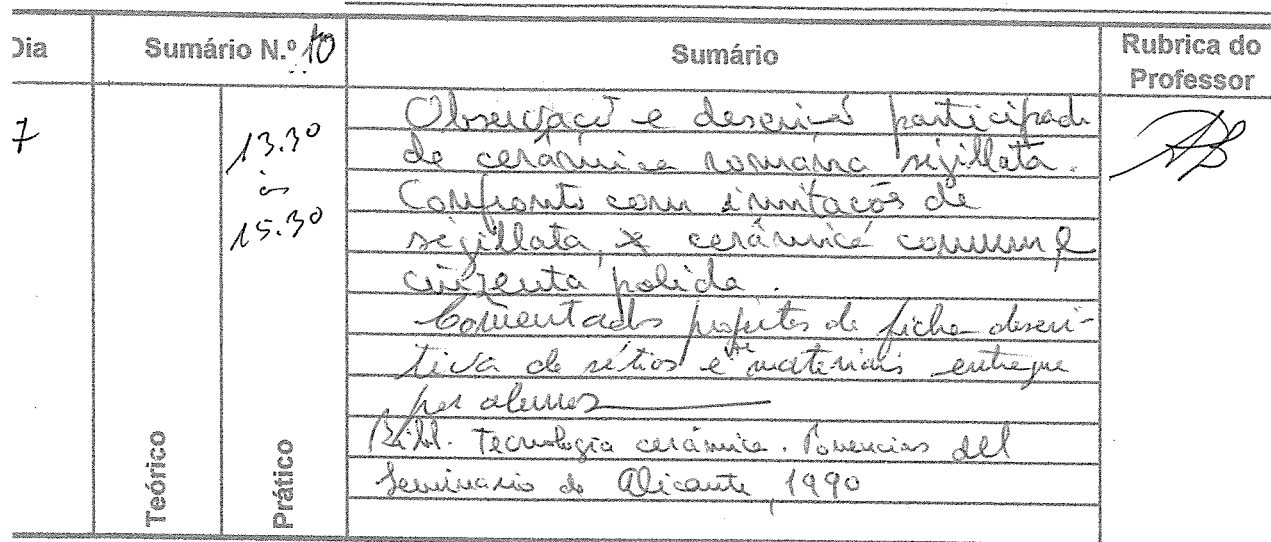 Dia Sumário N.º 10 Sumário Rubrica do Professor
7
13.30
às
15.30
Observação e descrição participada
de cerâmica romana sigillata.
Confronto com imitações de
sigillata, x cerâmica comum e
cinzenta polida.
Comentados projectos de ficha descri-
tiva de sítios e de materiais entregue
por alunos
Bibl. Tecnologia cerámica. Ponencias del
Seminario de Alicante, 1990
Teórico
Prático